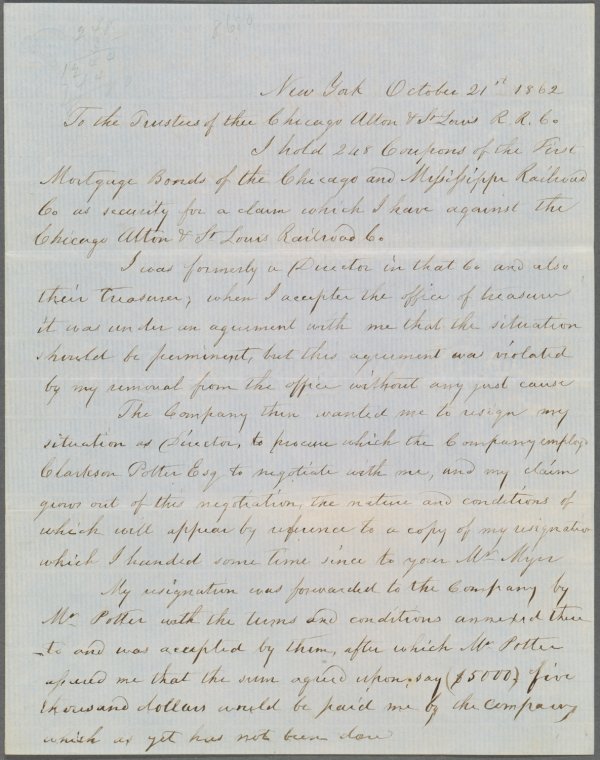 248
8610
New York October 21st 1862
To the Trustees of thee Chicago Alton & St Louis R. R. Co
I hold 248 Coupons of the First
Mortgage Bonds of the Chicago and Mississippi Railroad
Co as security for a claim which I have against the
Chicago Alton & St Louis Railroad Co
I was formerly a Director in that Co and also
their treasurer, when I accepted the office of treasurer
it was under an agreement with me that the situation
should be perminent, but this agreement was violated
by my removal from the office without any just cause
The Company then wanted me to resign my
situation as Director, to procure which the Company employd
Clarkson Potter Esq to negotiate with me, and my claim
grows out of this negotiation, the nature and conditions of
which will appear by reference to a copy of my resignation
which I handed some time since to your Mr Myer
My resignation was forwarded to the Company by
Mr Potter with the terms and conditions annexed there
to and was accepted by them, after which Mr Potter
assured me that the sum agreed upon, say ($5000) five
thousand dollars would be paid me by the Company
which as yet has not been done